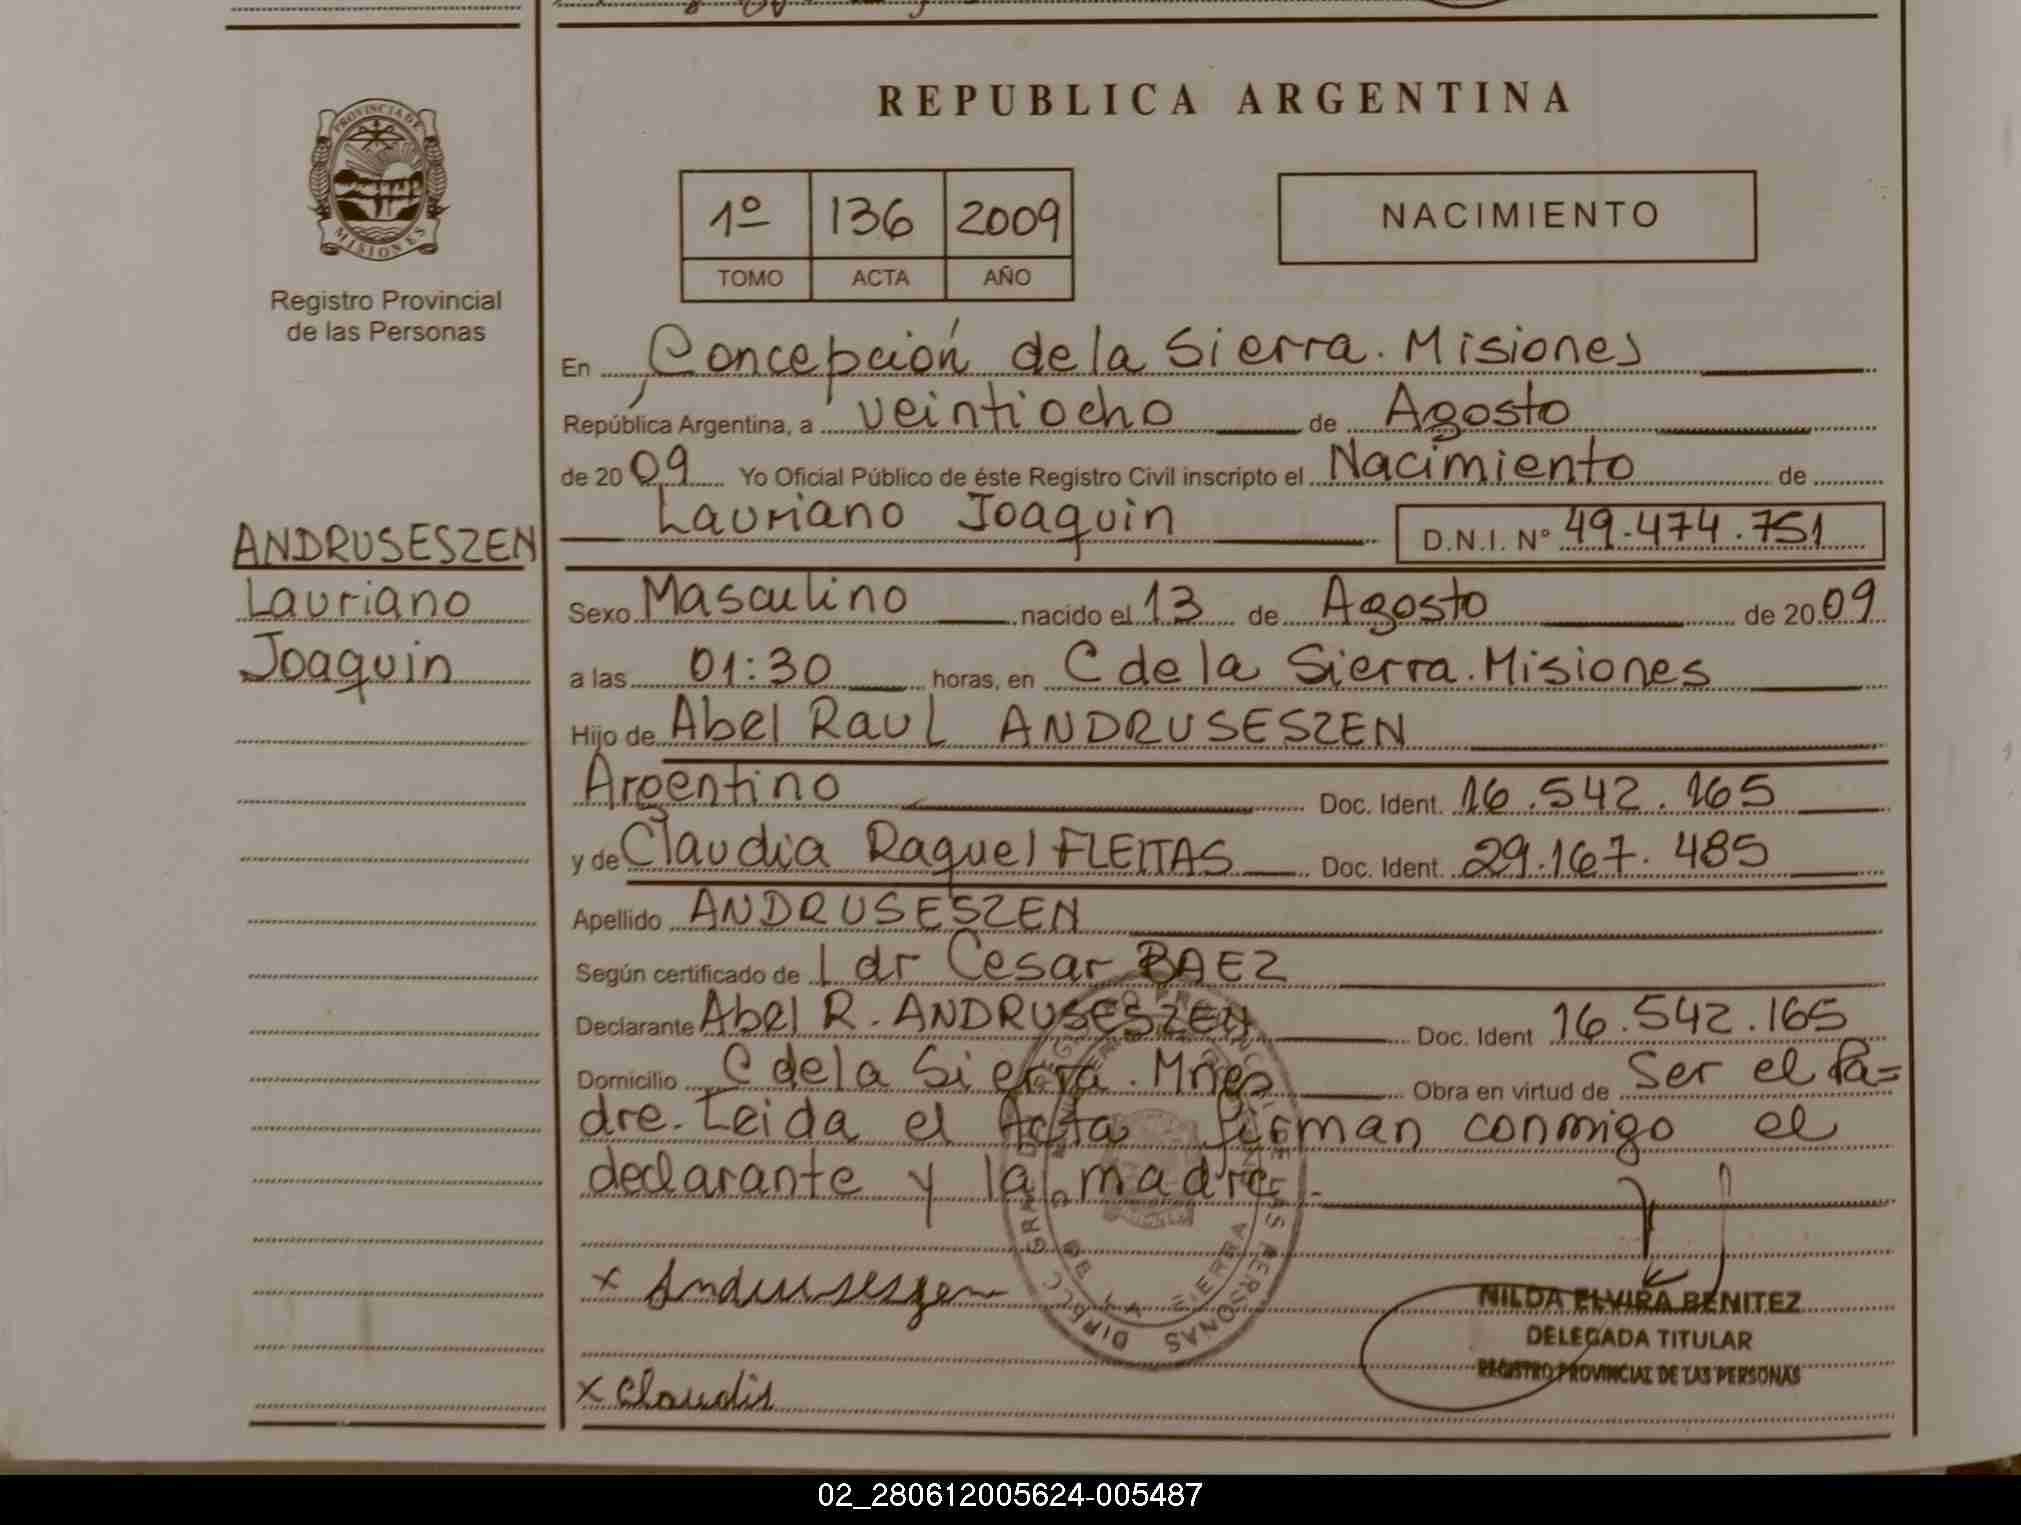 PROVINCIA DE
MISIONES
Registro Provincial
de las Personas
ANDRUSESZEN
Lauriano
Joaquin
REPUBLICA ARGENTINA
1º 136 2009
TOMO ACTA AÑO
NACIMIENTO
En Concepción de la Sierra. Misiones
República Argentina, a veintiocho de Agosto
de 2009 Yo Oficial Público de éste Registro Civil inscripto el Nacimiento de
Lauriano Joaquin D.N.I. Nº 49.474.751
Sexo Masculino nacido el 13 de Agosto de 2009
a las 01:30 horas, en C de la Sierra. Misiones
Hijo de Abel Raul ANDRUSESZEN
Argentino Doc. Ident. 16.542.165
y de Claudia Raquel FLEITAS Doc. Ident. 29.167.485
Apellido ANDRUSESZEN
Según certificado de Ldr Cesar BAEZ
Declarante Abel R. ANDRUSESZEN Doc. Ident 16.542.165
Domicilio C de la Sierra. Mnes Obra en virtud de Ser el Pa=
dre. Leida el Acta firman conmigo el
declarante y la madre.
x Andruseszen
x Claudis
NILDA ELVIRA BENITEZ
DELEGADA TITULAR
REGISTRO PROVINCIAL DE LAS PERSONAS
02_280612005624-005487